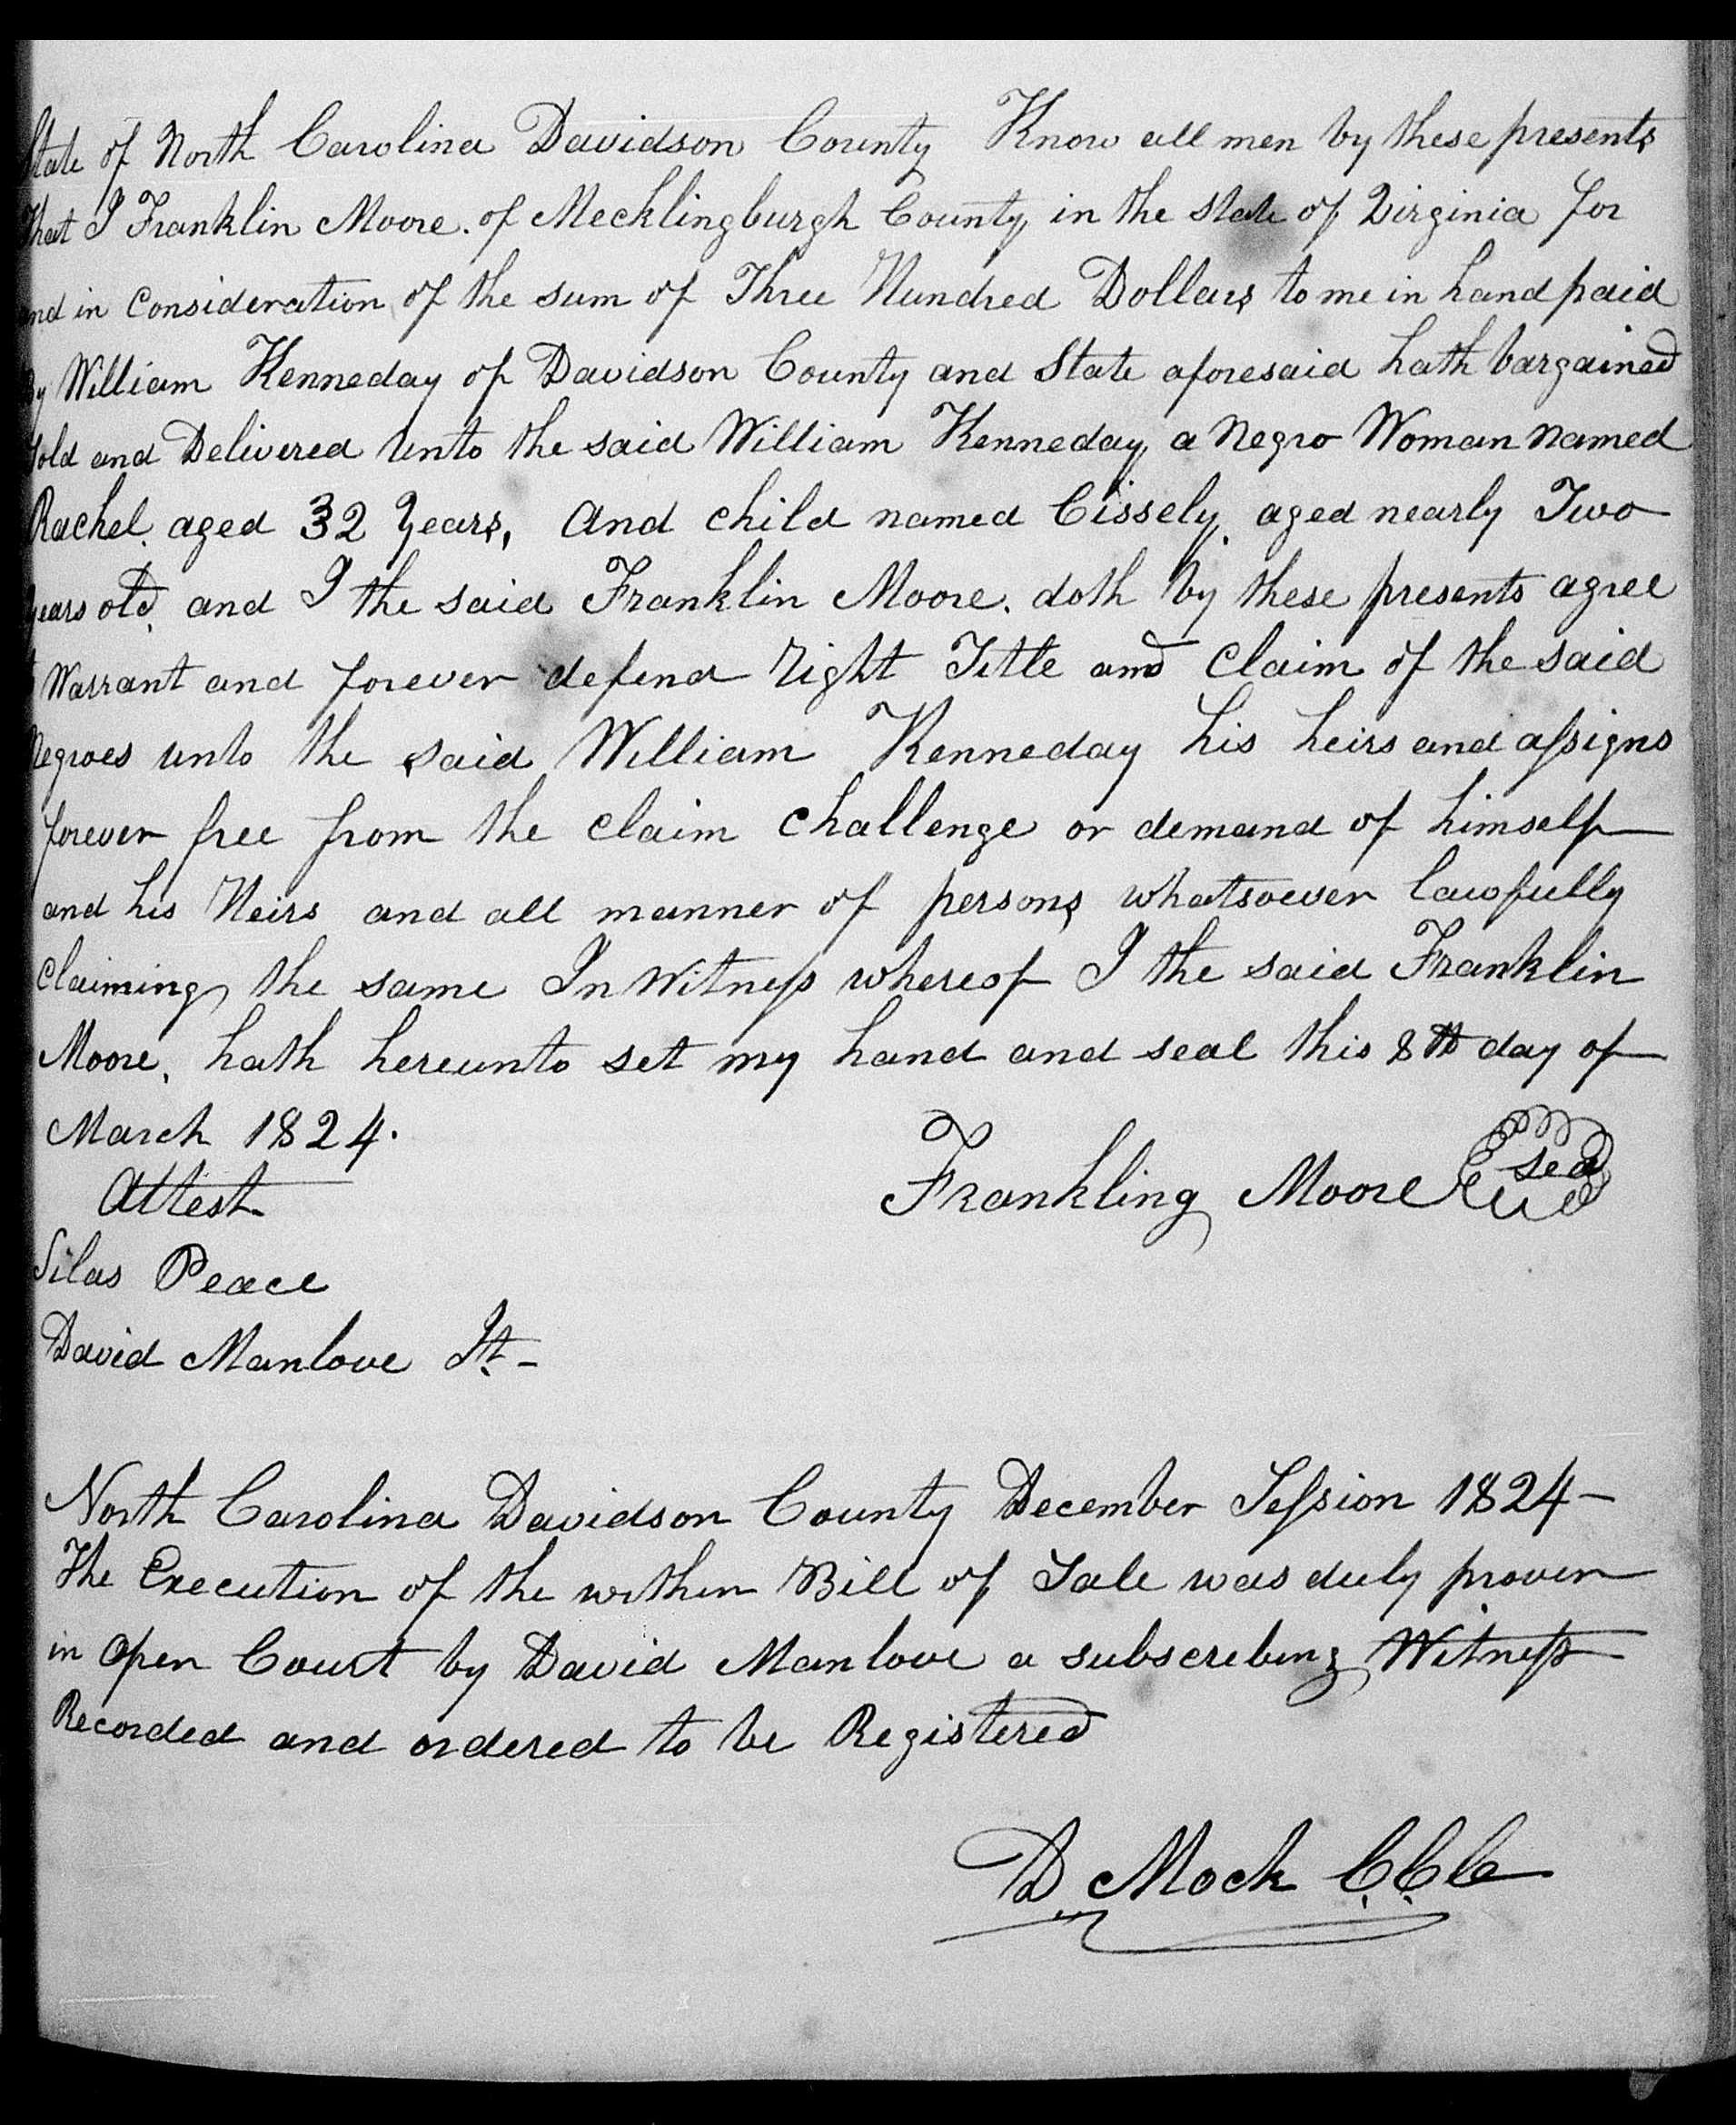 State of North Carolina Davidson County Know all men by these presents
That I Franklin Moore. of Mecklingburgh County, in the state of Virginia for
and in Consideration of the sum of Three Hundred Dollars to me in hand paid
By William Kenneday of Davidson County and State aforesaid hath bargained
Sold and Delivered Unto the said William Kenneday, a Negro Woman Named
Rachel. aged 32 Years, And child named Cissely, aged nearly Two
years old, and I the said Franklin Moore. doth by these presents agree
Warrant and forever defend right Title and Claim of the said
Negroes unto the said William Kenneday his heirs and assigns
forever free from the claim challenge or demand of himself
and his Heirs and all manner of persons whatsoever lawfully
Claiming the same In Witness whereof I the said Franklin
Moore, hath hereunto set my hand and seal this 8th day of
March 1824.
Attest
Frankling Moore Seal
Silas Peace
David Manlove Jt-
North Carolina Davidson County December Session 1824-
The Execution of the within Bill of Sale was duly proven
in Open Court by David Manlove a subscribing Witness
Recorded and ordered to be Registered
D. Mock C.C.C